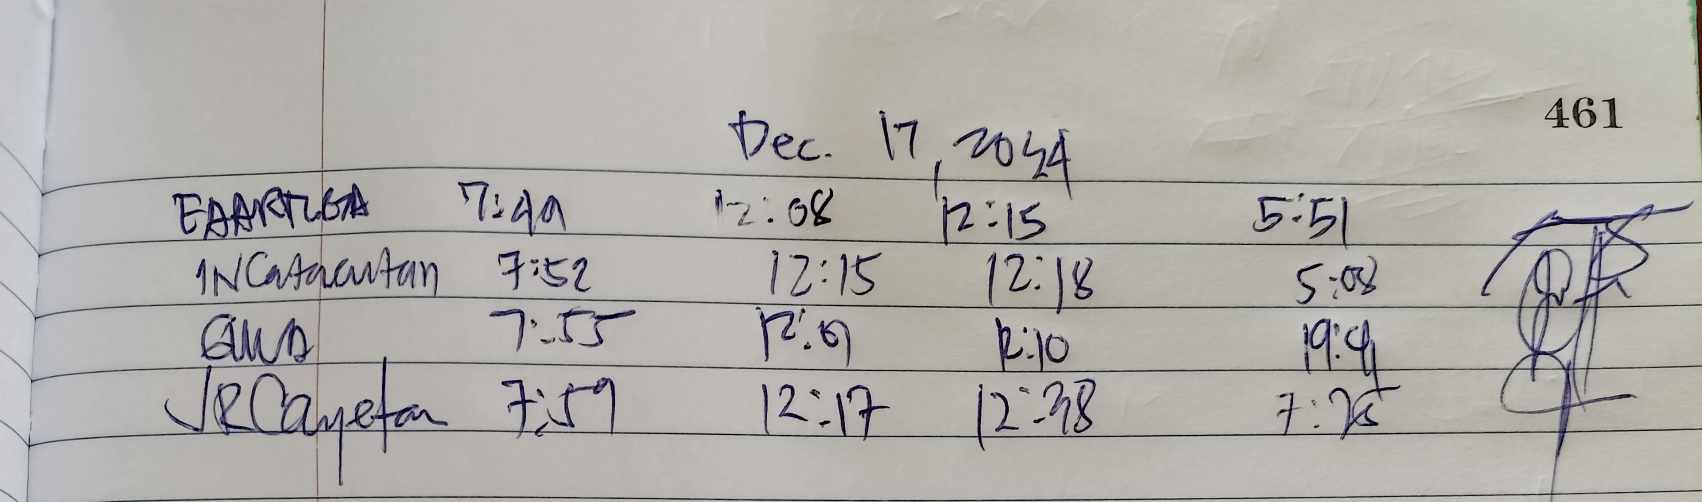 461
Dec. 17, 2024
7:49 12:08 12:15 5:51
INCatacutan 7:52 12:15 12:18 5:08
7:55 12:09 12:10
JRCayetan 7:59 12:17 12:38